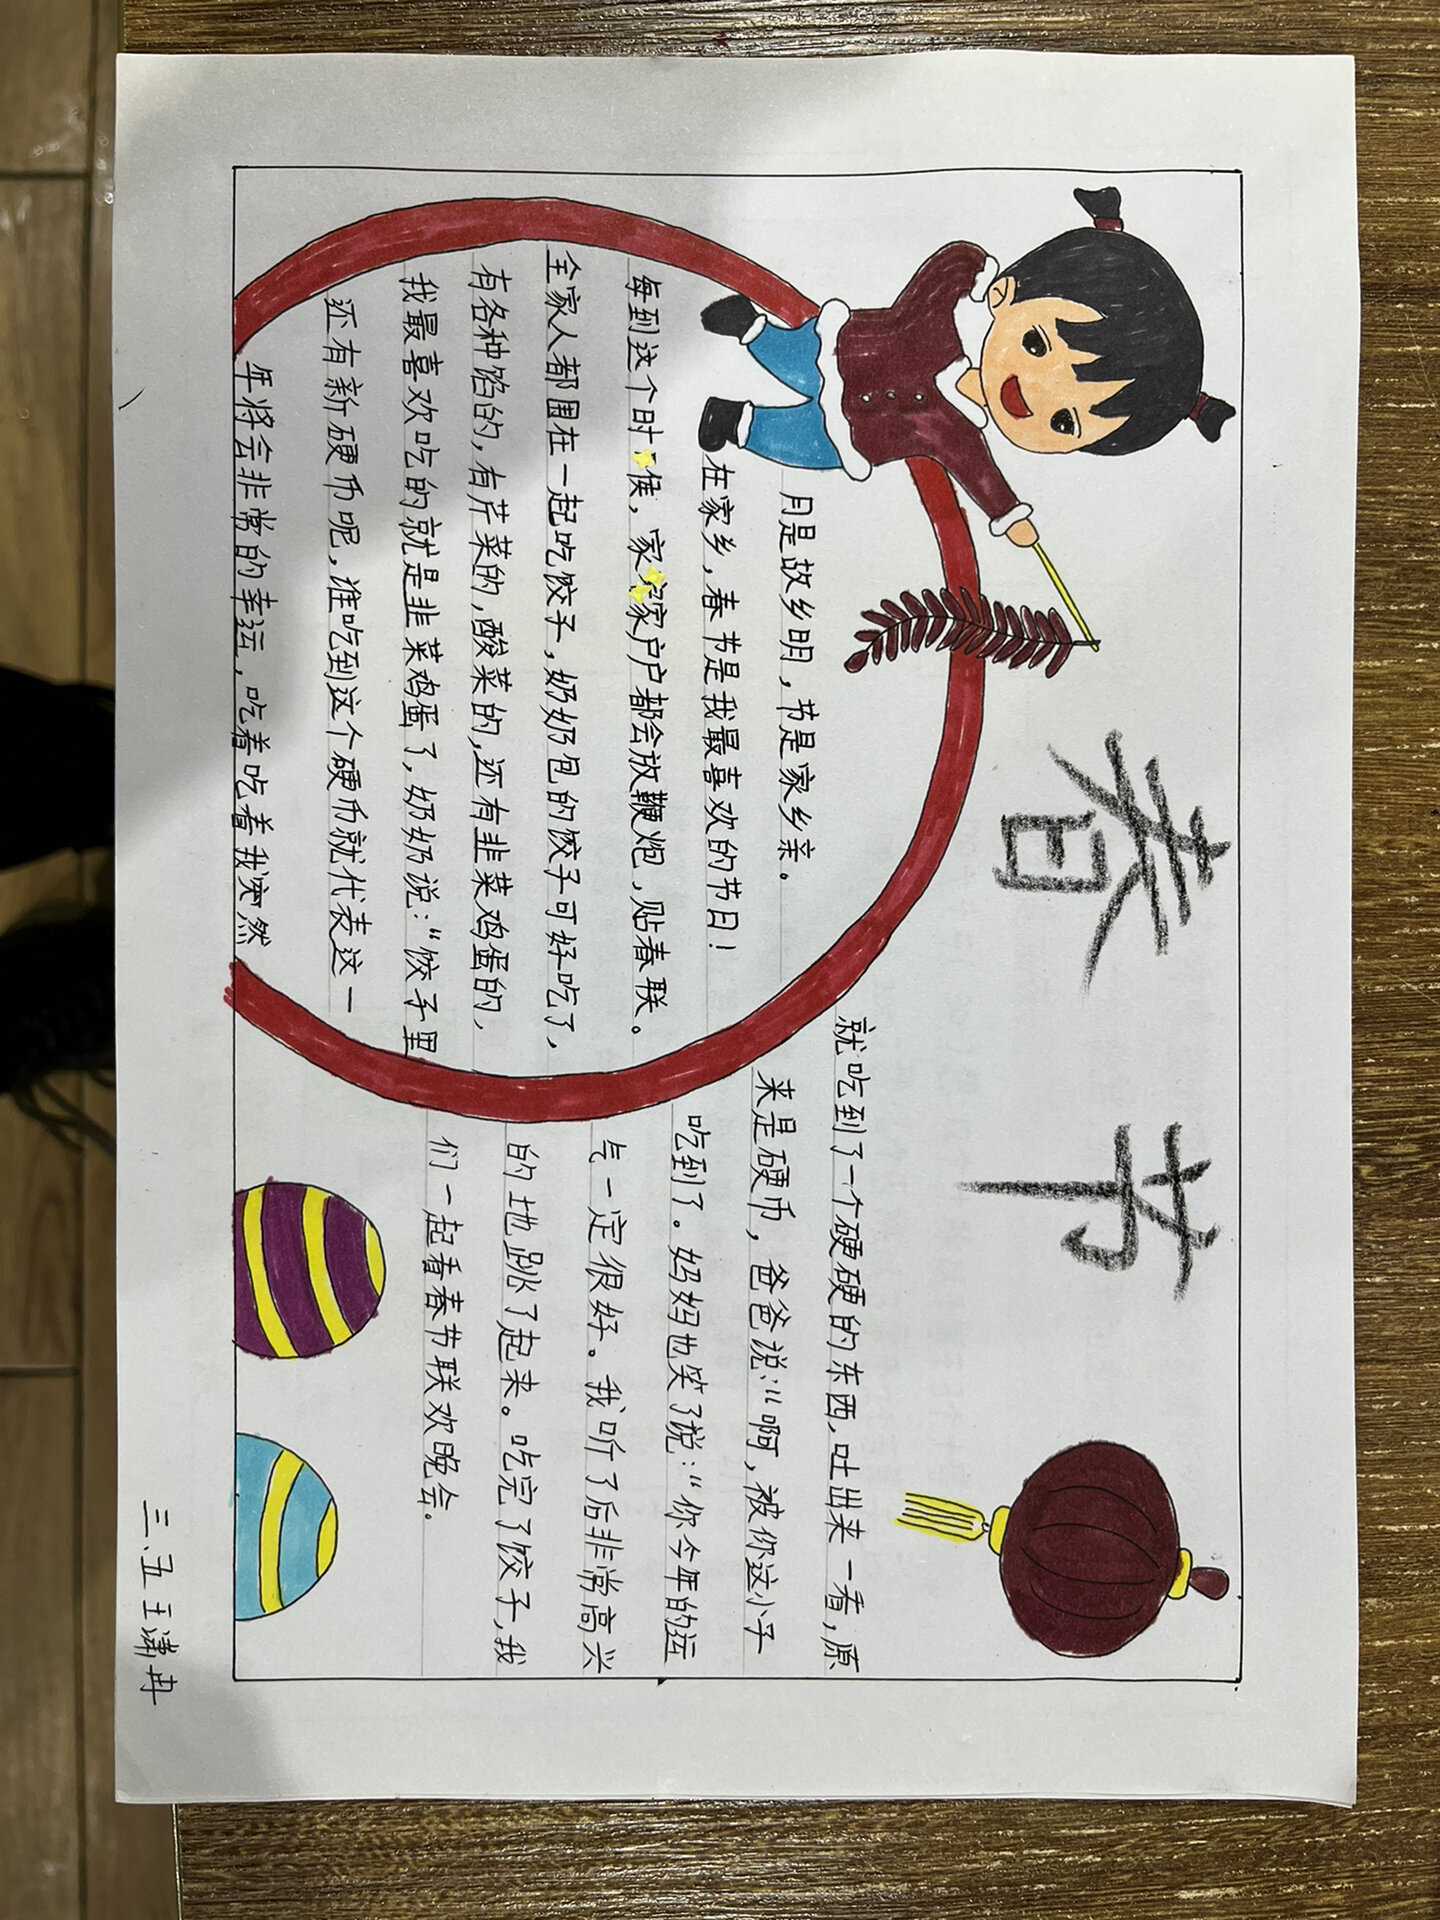 春节
月是故乡明，节是家乡亲。
在家乡，春节是我最喜欢的节日！
每到这个时候，家家家户户都会放鞭炮，贴春联。
全家人都围在一起吃饺子，奶奶包的饺子可好吃了，
有各种馅的，有芹菜的，酸菜的，还有韭菜鸡蛋的，
我最喜欢吃的就是韭菜鸡蛋了，奶奶说：“饺子里
还有新硬币呢，谁吃到这个硬币就代表这一
年将会非常的幸运，吃着吃着我突然
就吃到了一个硬硬的东西，吐出来一看，原
来是硬币，爸爸说：“啊，被你这小子
吃到了。妈妈也笑了说：“你今年的运
气一定很好。我听了后非常高兴
的地跳了起来。吃完了饺子，我
们一起看春节联欢晚会。
三、五 王潇冉